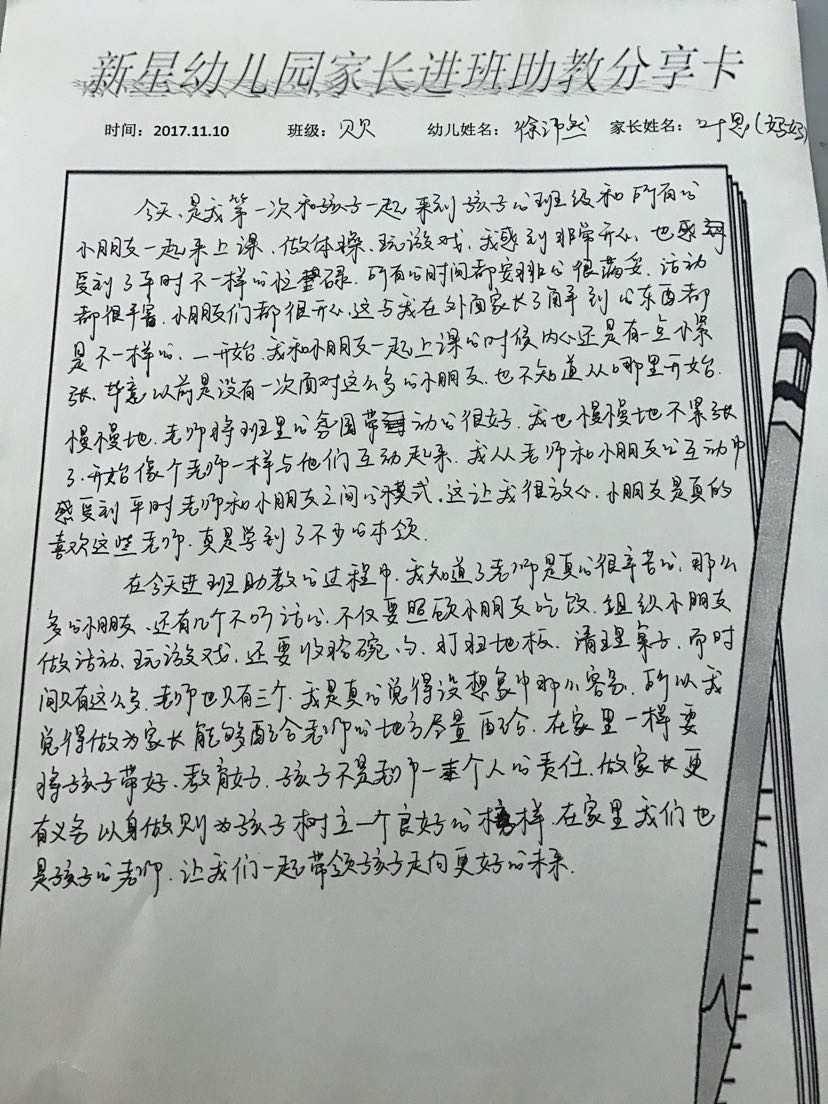 新星幼儿园家长进班助教分享卡
时间：2017.11.10 班级：贝贝 幼儿姓名：徐沛然 家长姓名：叶思(妈妈)
今天、是我第一次和孩子一起来到孩子的班级和所有的
小朋友一起来上课、做体操、玩游戏、我感到非常开心、也感
受到了平时不一样的忙碌、所有的时间都安排的很满妥、活动
都很丰富、小朋友们都很开心、这与我在外面家长了解到的东西都
是不一样的、一开始、我和小朋友一起上课的时候内心还是有一点小紧
张、毕竟以前是没有一次面对这么多的小朋友、也不知道从哪里开始、
慢慢地、老师将班里的氛围带动的很好、我也慢慢地不紧张
了、开始像个老师一样与他们互动起来、我从老师和小朋友的互动中
感受到平时老师和小朋友之间的模式、这让我很放心、小朋友是真的
喜欢这些老师、真是学到了不少的本领.
在今天进班助教的过程中、我知道了老师是真的很辛苦的、那么
多的小朋友、还有几个不听话的、不仅要照顾小朋友吃饭、组织小朋友
做活动、玩游戏、还要收拾碗、勺、打扫地板、清理桌子、而时
间只有这么多、老师也只有三个、我是真的觉得没想象中那么容易、所以我
觉得做为家长能够配合老师的地方尽量配合、在家里一样要
将孩子带好、教育好、孩子不是老师一个人的责任、做家长更
有义务以身做则为孩子树立一个良好的榜样、在家里我们也
是孩子的老师、让我们一起带领孩子走向更好的未来.